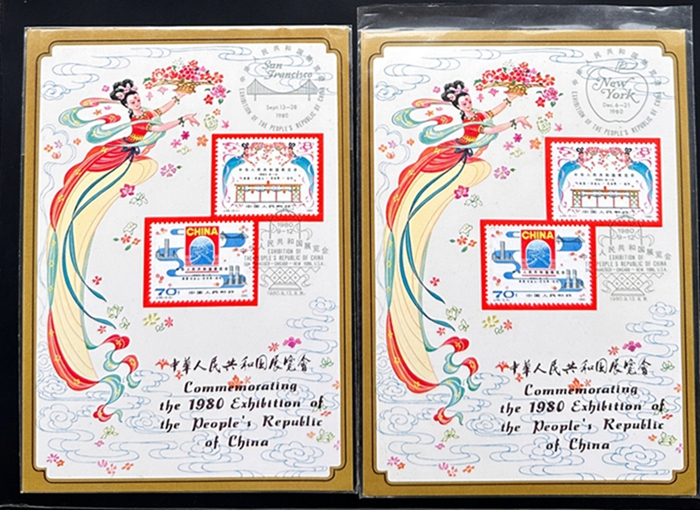 San
Francisco
Sept.13-28
1980
EXHIBITION OF THE PEOPLE'S REPUBLIC OF CHINA
中国人民邮政
CHINA
70分
中国人民邮政
1980
9-12
人民共和国展览会
EXHIBITION OF
THE PEOPLE'S REPUBLIC OF CHINA
中華人民共和国展覧会
Commemorating
the 1980 Exhibition of
the People's Republic
of China
New
York
Dec.6-21
1980
EXHIBITION OF THE PEOPLE'S REPUBLIC OF CHINA
中国人民邮政
CHINA
70分
中国人民邮政
1980
9-12
人民共和国展览会
EXHIBITION OF
THE PEOPLE'S REPUBLIC OF CHINA
中華人民共和国展覧会
Commemorating
the 1980 Exhibition of
the People's Republic
of China